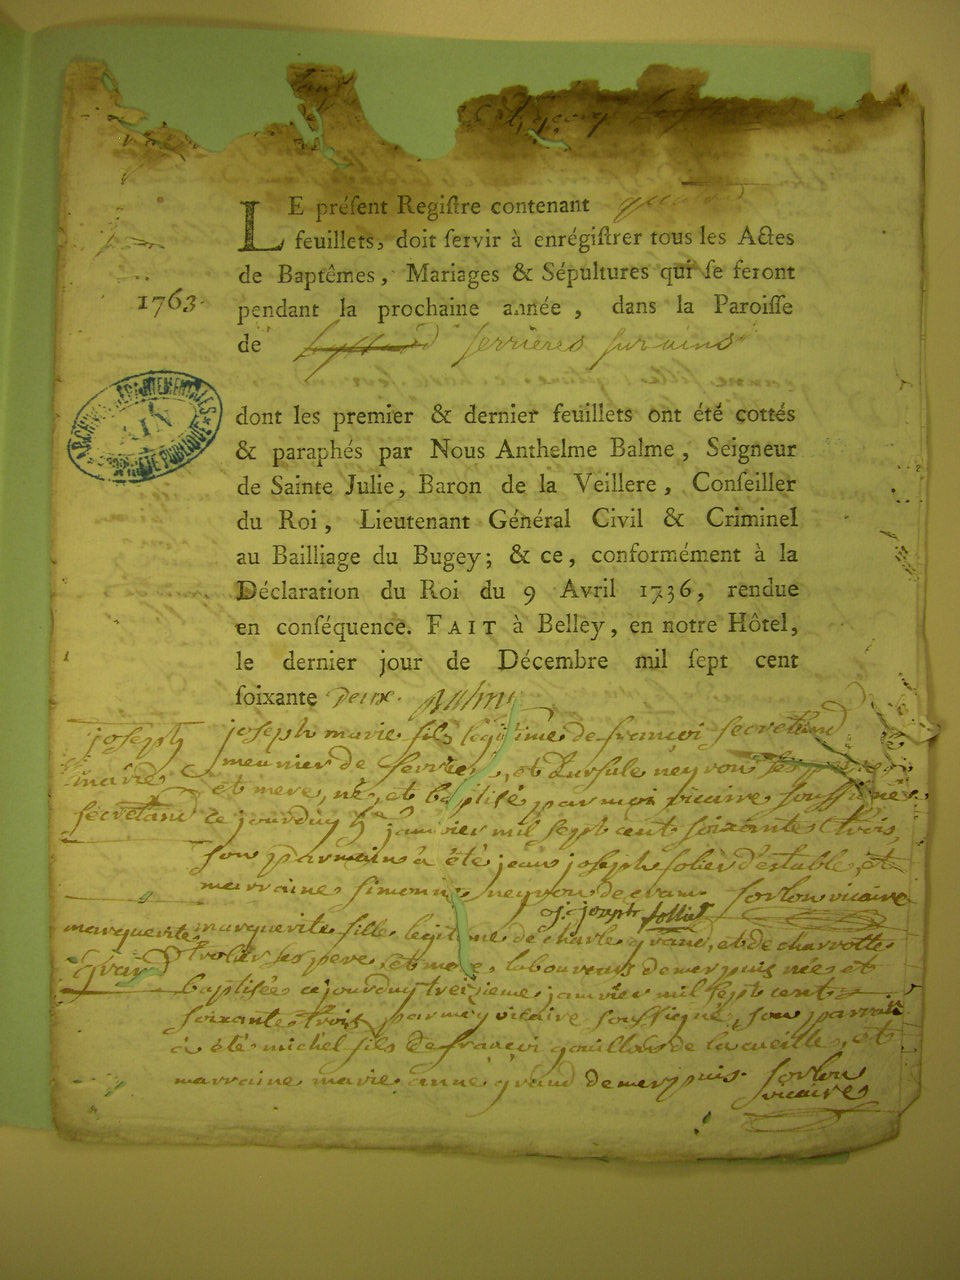 LE préſent Regiſtre contenant
feuillets, doit ſervir à enrégiſtrer tous les Actes
de Baptêmes, Mariages & Sépultures qui ſe feront
1763.
pendant la prochaine année, dans la Paroiſſe
de serrieres sur ains
ARCHIVES DÉPARTEMENTALES
AIN
PROPRIÉTÉ PUBLIQUE
dont les premier & dernier feuillets ont été cottés
& paraphés par Nous Anthelme Balme, Seigneur
de Sainte Julie, Baron de la Veillere, Conſeiller
du Roi, Lieutenant Général Civil & Criminel
au Bailliage du Bugey; & ce, conformément à la
Déclaration du Roi du 9 Avril 1736, rendue
en conſéquence. FAIT à Belley, en notre Hôtel,
le dernier jour de Décembre mil ſept cent
ſoixante Deux. Balme
joseph
marie
secretand
joseph marie fils legitime de francoi secretand
meunier de et Lursule neyron ses pere
et mere, né, et baptisé par moi vicaire soussigné
ce jourduy janvier mil sept cent soixante trois
son parrain à été jean joseph solier d'estable, et
marraine simonne neyron de sorlon vicaire
j. joseph sollier
marguerite
grand
marguerite fille legitime de charle grand, et de charrotte
trolier ses pere, et mere laboureurs demerpuis née et
baptisée ce jourduy treizieme janvier mil sept cent
soixante trois par moy vicaire soussigné, son parrain
à été michel fils de francoi de la cueille, et
marraine marie anne grand demerpuis. sorlon
vicaire